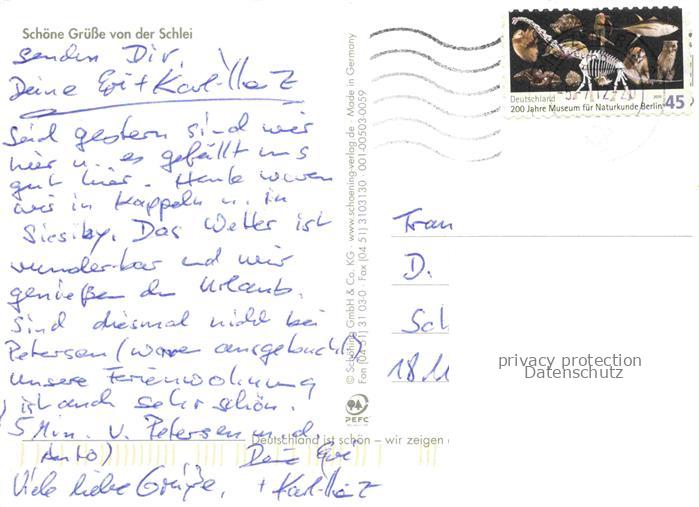 Schöne Grüße von der Schlei
senden Dir,
Deine Evi + Karl-Heinz
Seid gestern sind wir
hier u. es gefällt uns
gut hier. Heute waren
wir in Kappeln u. in
Siesiby. Das Wetter ist
wunderbar und wir
genießen den Urlaub.
Sind diesmal nicht bei
Petersen (waren ausgebucht)
unsere Ferienwohnung
ist auch sehr schön.
5 Min. v. Petersen m. d.
Auto) Deine Evi
Viele liebe Grüße, + Karl-Heinz
© Schöning GmbH & Co. KG · www.schoening-verlag.de · Made in Germany
Fon (04 51) 31 030 · Fax (04 51) 3103130 001-00503-0059
PEFC
Deutschland ist schön – wir zeigen
Deutschland
200 Jahre Museum für Naturkunde Berlin 45
Frau
D.
Sch
18.11
privacy protection
Datenschutz